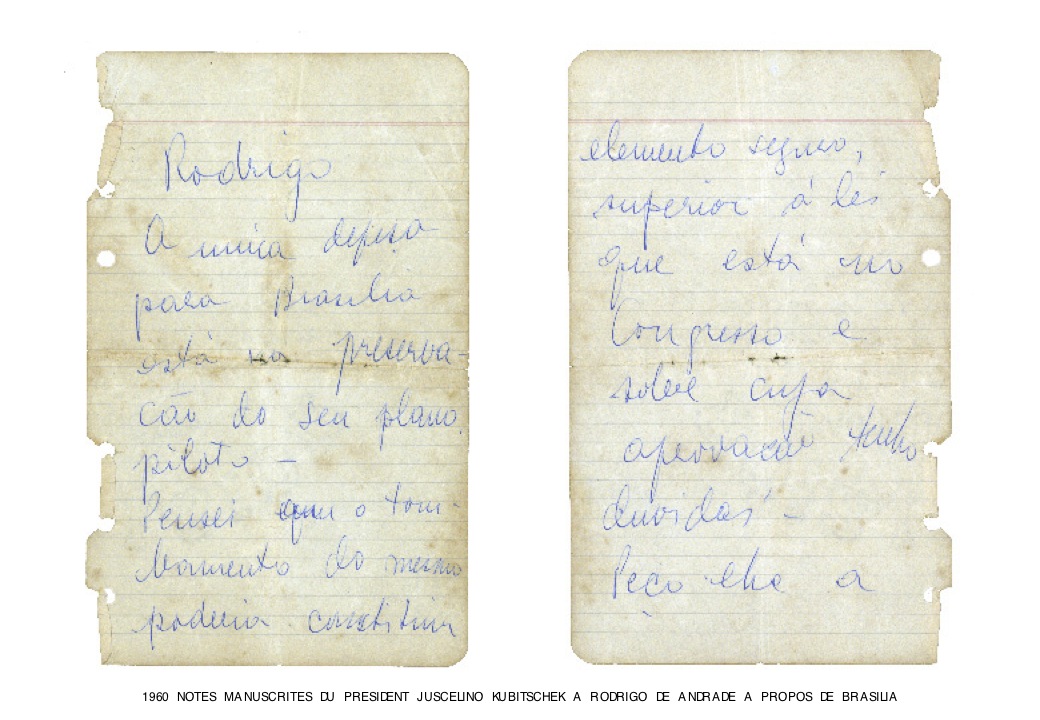 Rodrigo
A unica defesa
para Brasilia
está na preserva-
ção do seu plano
piloto –
Pensei que o tom-
bamento do mesmo
poderia constituir
elemento seguro,
superior á lei
que está no
Congresso e
sobre cuja
aprovação tenho
duvidas –
Peço-lhe a
1960 NOTES MANUSCRITES DU PRESIDENT JUSCELINO KUBITSCHEK A RODRIGO DE ANDRADE A PROPOS DE BRASILIA